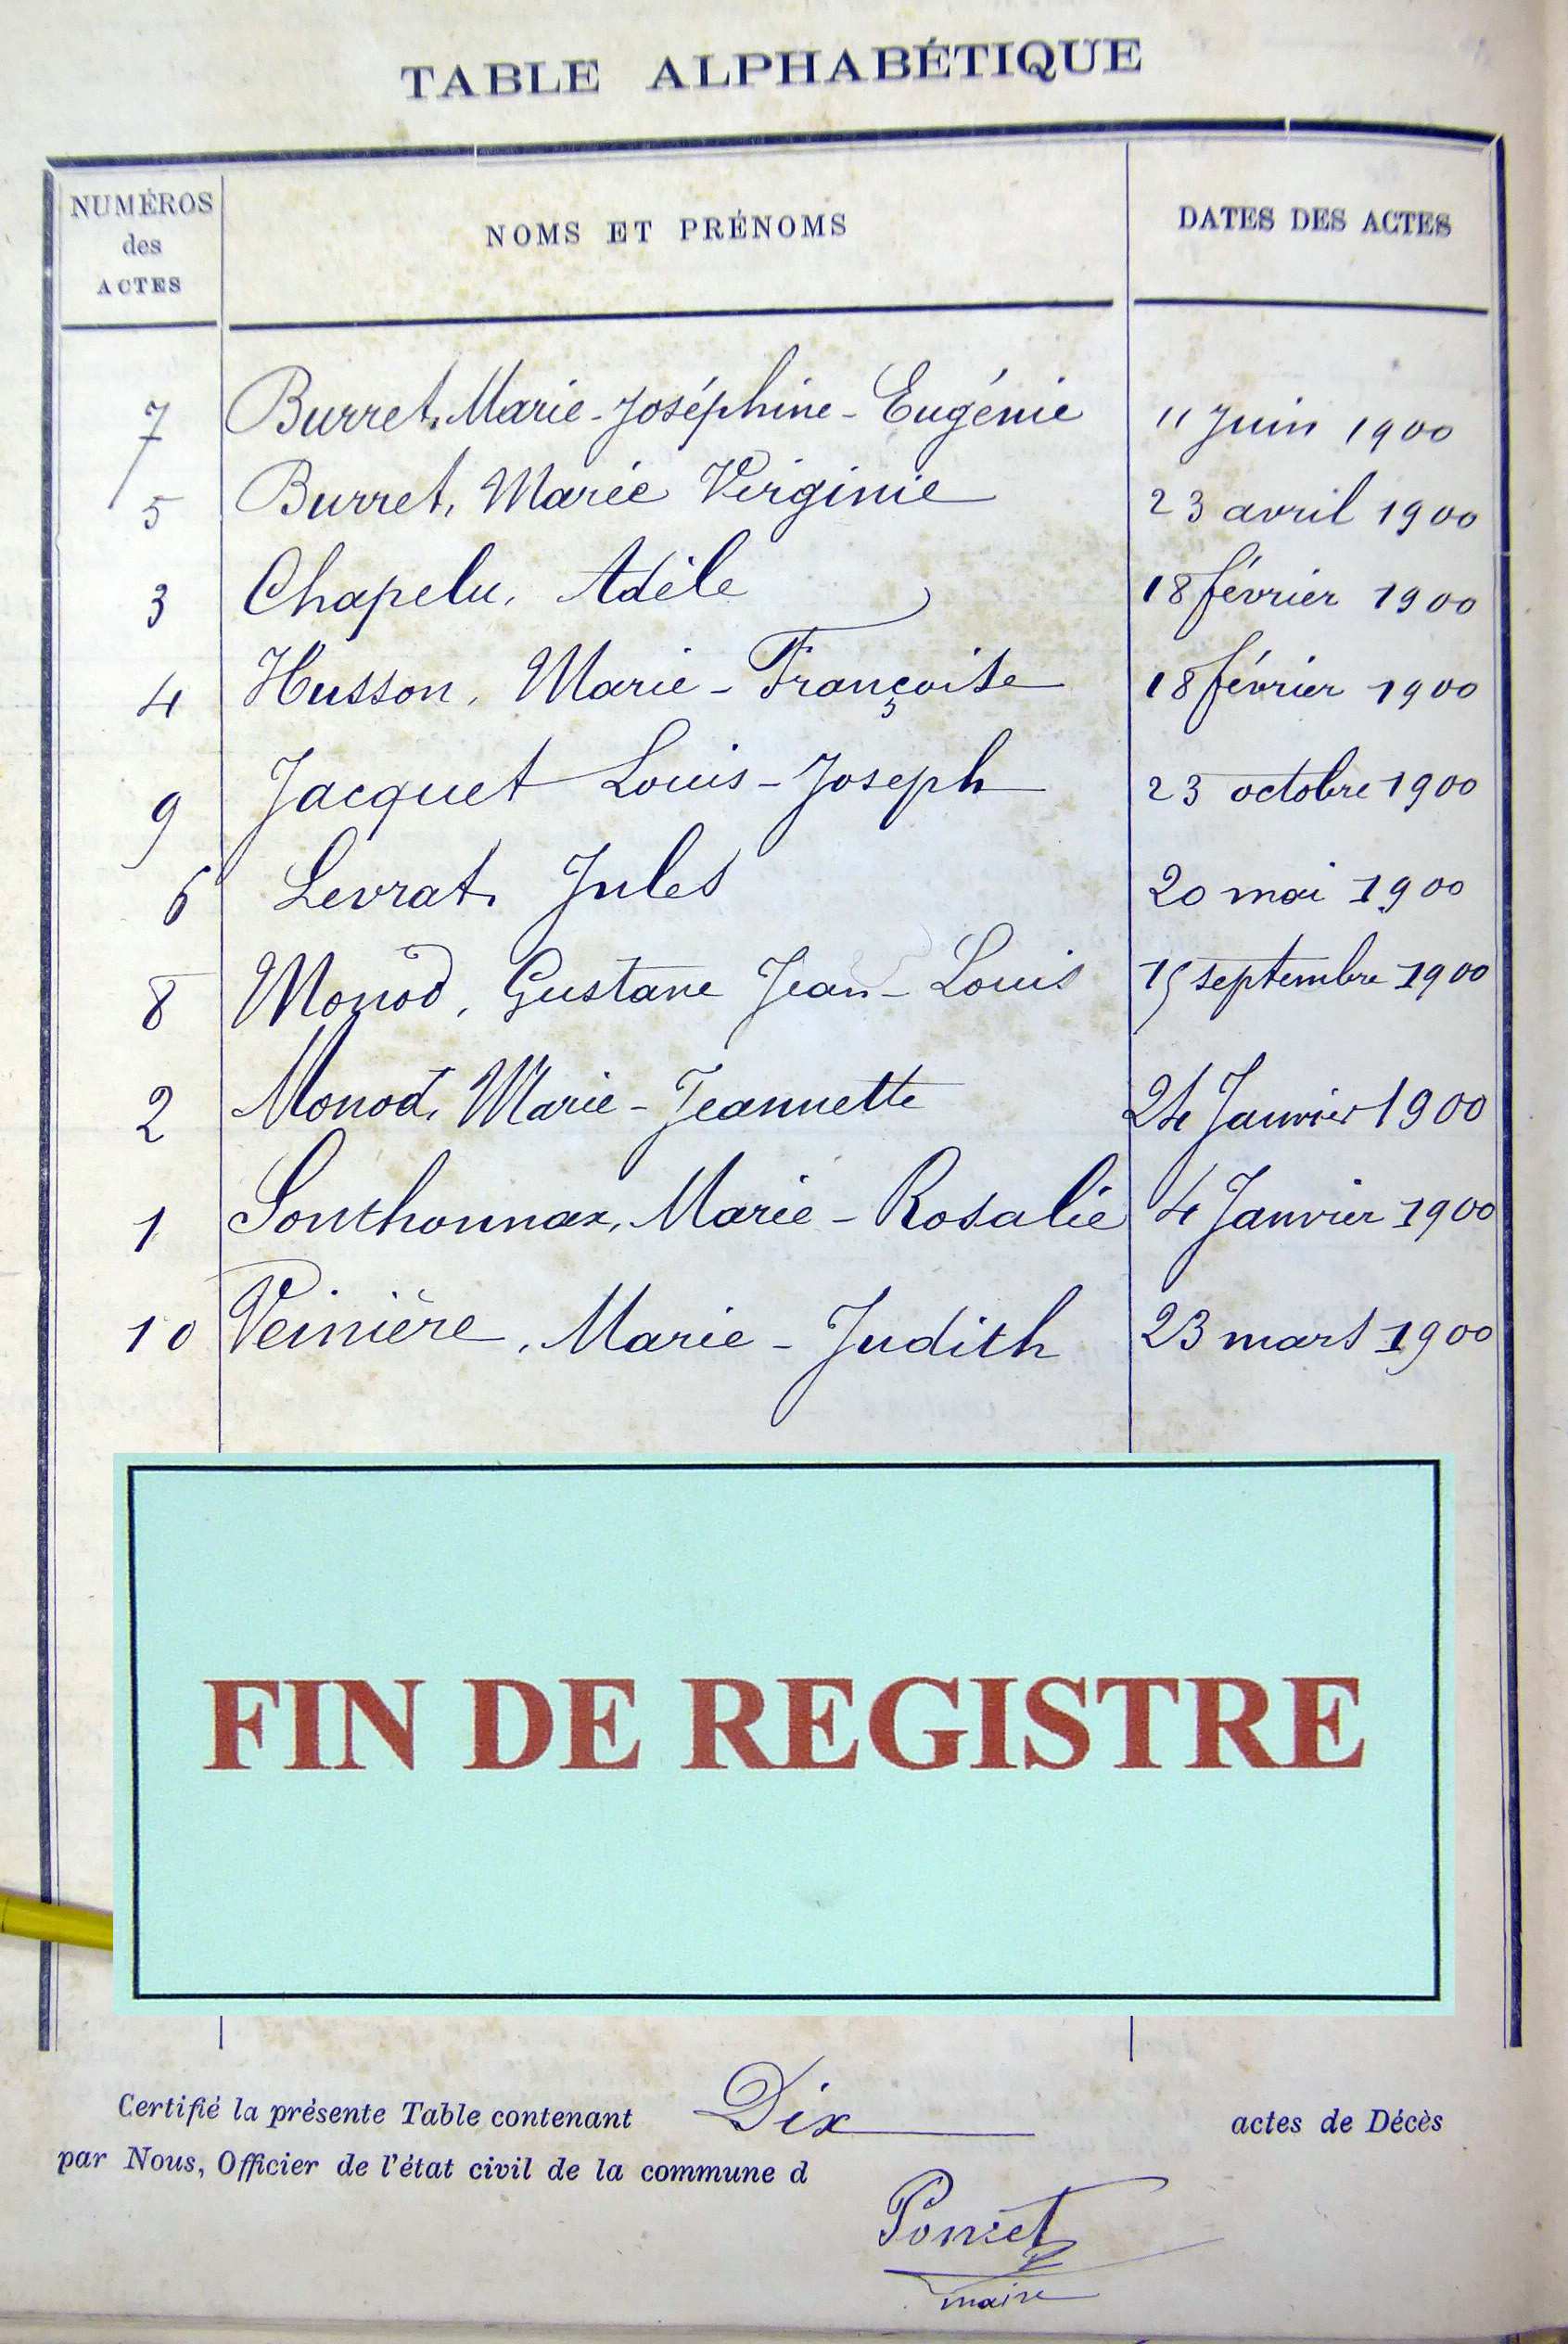 TABLE ALPHABÉTIQUE
NUMÉROS des ACTES
NOMS ET PRÉNOMS
DATES DES ACTES
7 Burret, Marie-Joséphine-Eugénie 11 Juin 1900
5 Burret, Marie Virginie 23 avril 1900
3 Chapelu, Adèle 18 février 1900
4 Husson, Marie-Françoise 18 février 1900
9 Jacquet Louis-Joseph 23 octobre 1900
6 Levrat, Jules 20 mai 1900
8 Monod, Gustave Jean-Louis 15 septembre 1900
2 Monod, Marie-Jeannette 24 Janvier 1900
1 Sonthonnax, Marie-Rosalie 4 Janvier 1900
10 Veinière, Marie-Judith 23 mars 1900
FIN DE REGISTRE
Certifié la présente Table contenant Dix actes de Décès
par Nous, Officier de l'état civil de la commune d
Poncet
maire